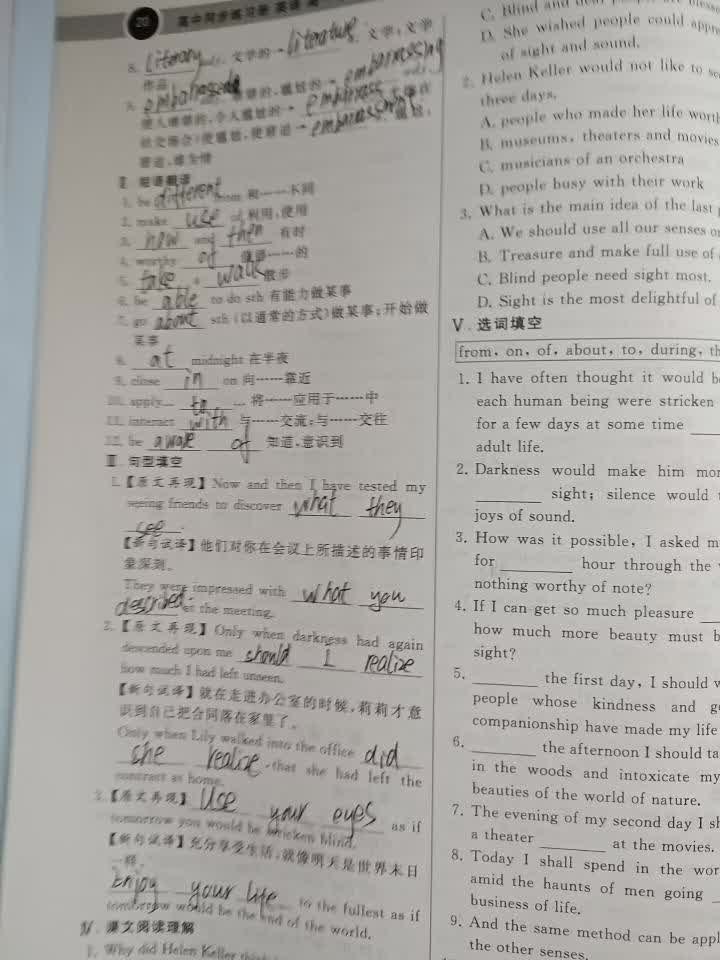 20 高中同步练习册 英语
8. literary 文学的→literature 文学;文学
作品
9. embarrassing
社交场合)使尴尬,使窘迫→
窘迫,难为情
Ⅱ. 短语翻译
1. be different from 和……不同
2. make use of 利用,使用
3. now and then 有时
4. worthy of 值得……的
5. take a walk 散步
6. be able to do sth 有能力做某事
7. go about sth (以通常的方式)做某事;开始做
某事
8. at midnight 在半夜
9. close in on 向……靠近
10. apply... to ... 将……应用于……中
11. interact with 与……交流;与……交往
12. be aware of 知道,意识到
Ⅲ. 句型填空
1.【原文再现】Now and then I have tested my
seeing friends to discover what they
see.
【新句试译】他们对你在会议上所描述的事情印
象深刻。
They were impressed with what you
described at the meeting.
2.【原文再现】Only when darkness had again
descended upon me should I realize
how much I had left unseen.
【新句试译】就在走进办公室的时候,莉莉才意
识到自己把合同落在家里了。
Only when Lily walked into the office did
she realize that she had left the
contract at home.
3.【原文再现】Use your eyes as if
tomorrow you would be stricken blind.
【新句试译】充分享受生活,就像明天是世界末日
一样。
Enjoy your life to the fullest as if
tomorrow would be the end of the world.
Ⅳ. 课文阅读理解
1. Why did Helen Keller
C. Blind and
D. She wished people could
of sight and sound.
2. Helen Keller would not like to
three days.
A. people who made her life
B. museums, theaters and movies
C. musicians of an orchestra
D. people busy with their work
3. What is the main idea of the last
A. We should use all our senses
B. Treasure and make full use of
C. Blind people need sight most.
D. Sight is the most delightful of
Ⅴ. 选词填空
from, on, of, about, to, during,
1. I have often thought it would
each human being were stricken
for a few days at some time ____
adult life.
2. Darkness would make him
____ sight; silence would
joys of sound.
3. How was it possible, I asked
for ____ hour through the
nothing worthy of note?
4. If I can get so much pleasure ____
how much more beauty must
sight?
5. ____ the first day, I should
people whose kindness and
companionship have made my life
6. ____ the afternoon I should
in the woods and intoxicate my
beauties of the world of nature.
7. The evening of my second day I
a theater ____ at the movies.
8. Today I shall spend in the
amid the haunts of men going ____
business of life.
9. And the same method can be
the other senses.